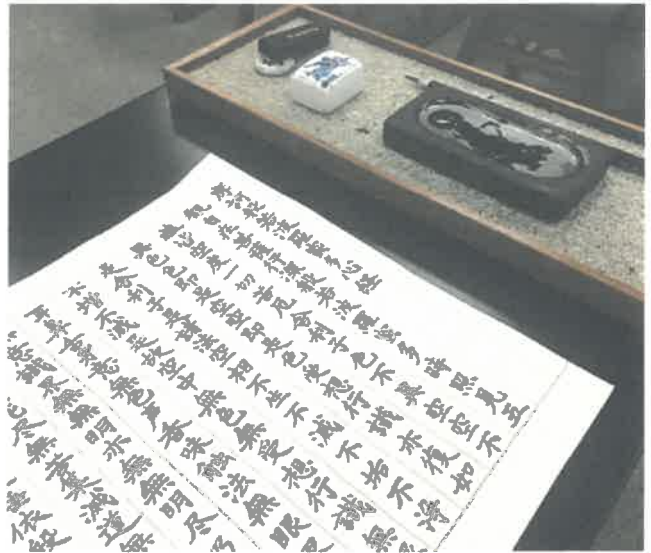 摩訶般若波羅蜜多心經
觀自在菩薩行深般若波羅蜜多時照見五
蘊皆空度一切苦厄舍利子色不異空空不
異色色即是空空即是色受想行識亦復如
是舍利子是諸法空相不生不滅不垢不淨
不增不減是故空中無色無受想行識無
耳鼻舌身意無色聲香味觸法無眼界
意識界無無明亦無無明尽乃
尽無苦集滅道無
埵依般